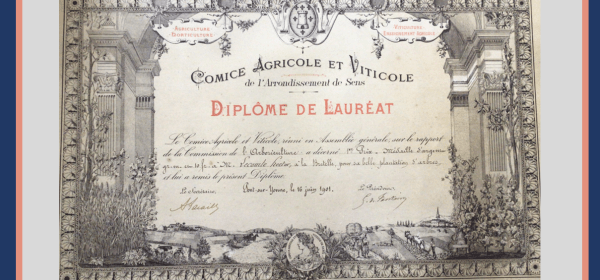 Agriculture
Horticulture
Viticulture
Enseignement Agricole
Comice Agricole et Viticole
de l'Arrondissement de Sens
Diplôme de Lauréat
Le Comice Agricole et Viticole, réuni en Assemblée générale, sur le rapport
de la Commission de l'Arboriculture a décerné 1er Prix = Médaille d'argent
à la pour sa belle plantation d'arbres,
et lui a remis le présent Diplôme.
Le Secrétaire, Pont-sur-Yonne, le 16 juin 1901. Le Président,